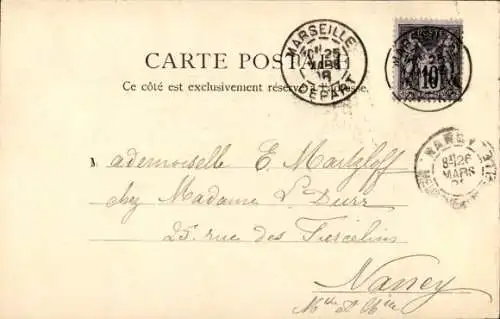 CARTE POSTALE
Ce côté est exclusivement réservé à l'adresse.
MARSEILLE
25
MARS
DEPART
10
NANCY
8E 26
MARS
ademoiselle E. Maitzloff
chez Madame L. Durr
25 rue des Tiercelins
Nancy
Mthe et Mlle